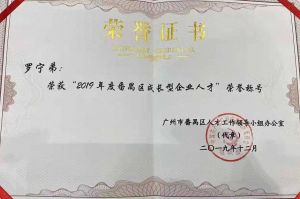 荣誉证书
罗宇弟:
荣获“2019年度番禺区成长型企业人才”荣誉称号
广州市番禺区人才工作领导小组办公室
(代章)
二〇一九年十二月